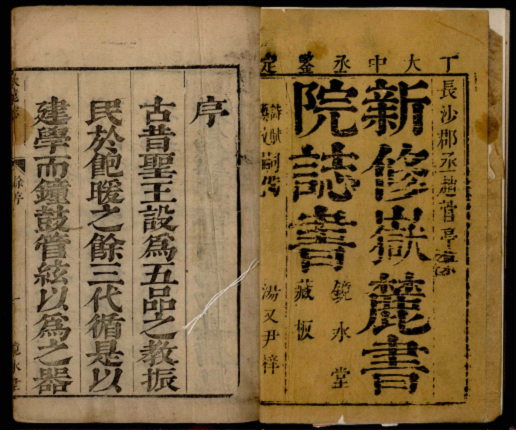 丁大中丞鑒定
長沙郡丞趙管亭
新修嶽麓書
院誌書
鏡水堂
藏板
湯又尹梓
序
古昔聖王設為五品之教振
民於飽暖之餘三代循是以
建學而鐘鼓管絃以為之器
鏡水堂